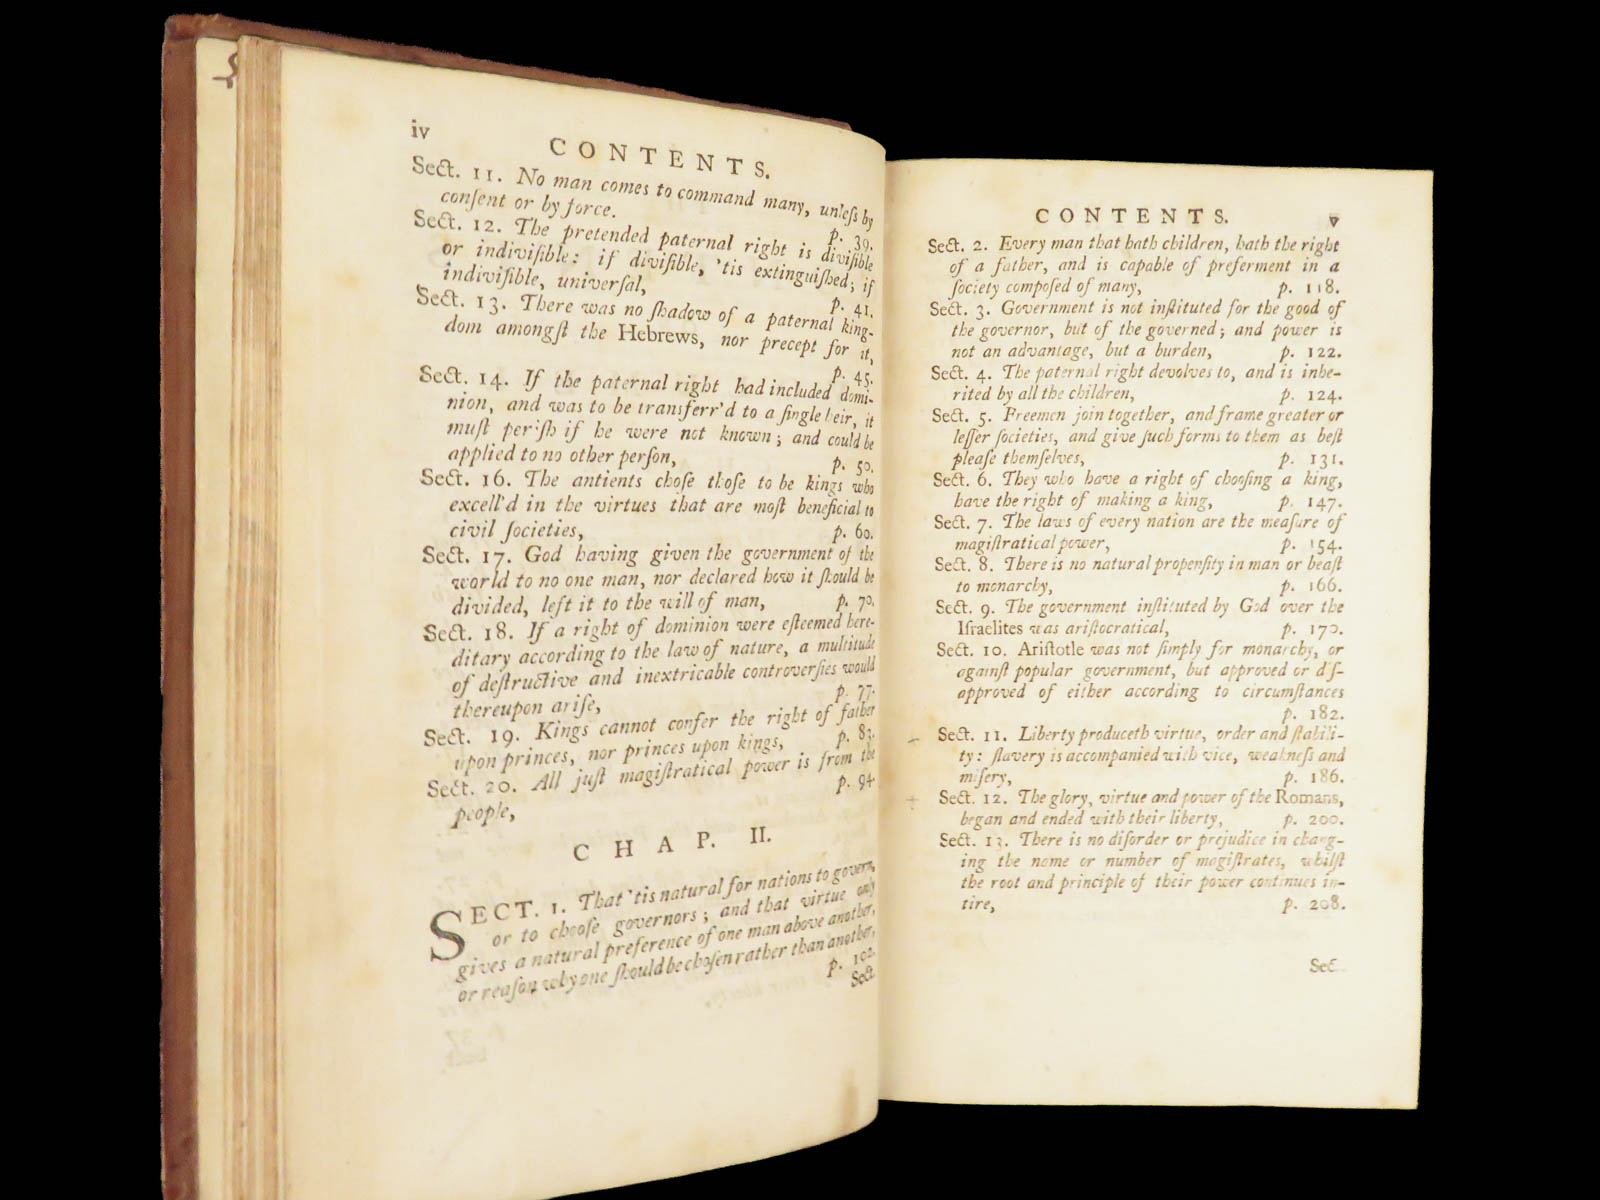 iv
CONTENTS.
Sect. 11. No man comes to command many, unleſs by
conſent or by force.
p. 39.
Sect. 12. The pretended paternal right is diviſible
or indiviſible: if diviſible, 'tis extinguiſhed; if
indiviſible, univerſal,
p. 41.
Sect. 13. There was no ſhadow of a paternal king-
dom amongſt the Hebrews, nor precept for it,
p. 45.
Sect. 14. If the paternal right had included domi-
nion, and was to be transferr'd to a ſingle heir, it
muſt periſh if he were not known; and could be
applied to no other perſon,
p. 50.
Sect. 16. The antients choſe thoſe to be kings who
excell'd in the virtues that are moſt beneficial to
civil ſocieties,
p. 60.
Sect. 17. God having given the government of the
world to no one man, nor declared how it ſhould be
divided, left it to the will of man,
p. 70.
Sect. 18. If a right of dominion were eſteemed here-
ditary according to the law of nature, a multitude
of deſtructive and inextricable controverſies would
thereupon ariſe,
p. 77.
Sect. 19. Kings cannot confer the right of father
upon princes, nor princes upon kings,
p. 83.
Sect. 20. All juſt magiſtratical power is from the
people,
p. 94.
CHAP. II.
SECT. 1. That 'tis natural for nations to govern,
or to chooſe governors; and that virtue only
gives a natural preference of one man above another,
or reaſon why one ſhould be choſen rather than another,
p. 102.
Sect.
CONTENTS. v
Sect. 2. Every man that hath children, hath the right
of a father, and is capable of preferment in a
ſociety compoſed of many, p. 118.
Sect. 3. Government is not inſtituted for the good of
the governor, but of the governed; and power is
not an advantage, but a burden, p. 122.
Sect. 4. The paternal right devolves to, and is inhe-
rited by all the children, p. 124.
Sect. 5. Freemen join together, and frame greater or
leſſer ſocieties, and give ſuch forms to them as beſt
pleaſe themſelves, p. 131.
Sect. 6. They who have a right of chooſing a king,
have the right of making a king, p. 147.
Sect. 7. The laws of every nation are the meaſure of
magiſtratical power, p. 154.
Sect. 8. There is no natural propenſity in man or beaſt
to monarchy, p. 166.
Sect. 9. The government inſtituted by God over the
Iſraelites was ariſtocratical, p. 170.
Sect. 10. Ariſtotle was not ſimply for monarchy, or
againſt popular government, but approved or diſ-
approved of either according to circumſtances
p. 182.
Sect. 11. Liberty produceth virtue, order and ſtabili-
ty: ſlavery is accompanied with vice, weakneſs and
miſery, p. 186.
Sect. 12. The glory, virtue and power of the Romans,
began and ended with their liberty, p. 200.
Sect. 13. There is no diſorder or prejudice in chang-
ing the name or number of magiſtrates, whilſt
the root and principle of their power continues in-
tire, p. 208.
Sect.